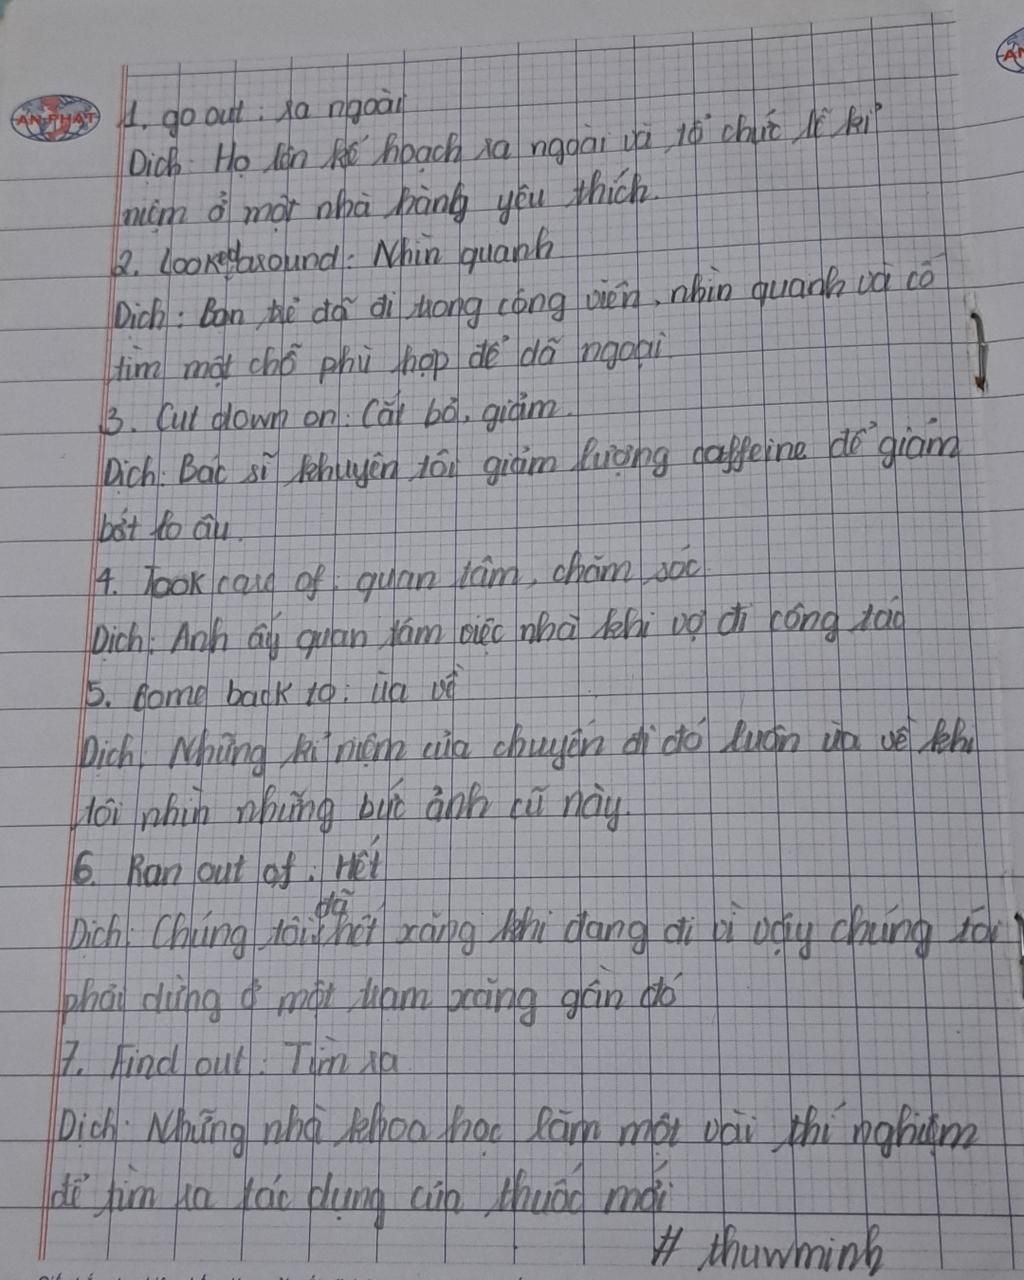 AN PHÁT
1. go out : ra ngoài
Dịch: Họ lên kế hoạch ra ngoài và tổ chức lễ kỉ
niệm ở một nhà hàng yêu thích.
2. Looked around : Nhìn quanh
Dịch : Bọn trẻ đã đi trong công viên, nhìn quanh và cố
tìm một chỗ phù hợp để dã ngoại
3. Cut down on : Cắt bỏ, giảm.
Dịch : Bác sĩ khuyên tôi giảm lượng caffeine để giảm
bớt lo âu.
4. Took care of : quan tâm, chăm sóc
Dịch : Anh ấy quan tâm việc nhà khi vợ đi công tác
5. Come back to : ùa về
Dịch: Những kỉ niệm của chuyến đi đó luôn ùa về khi
tôi nhìn những bức ảnh cũ này.
6. Ran out of : Hết
Dịch: Chúng tôi đã hết xăng khi đang đi vì vậy chúng tôi
phải dừng ở một trạm xăng gần đó
7. Find out : Tìm ra
Dịch: Những nhà khoa học làm một vài thí nghiệm
để tìm ra tác dụng của thuốc mới
# thuwminh